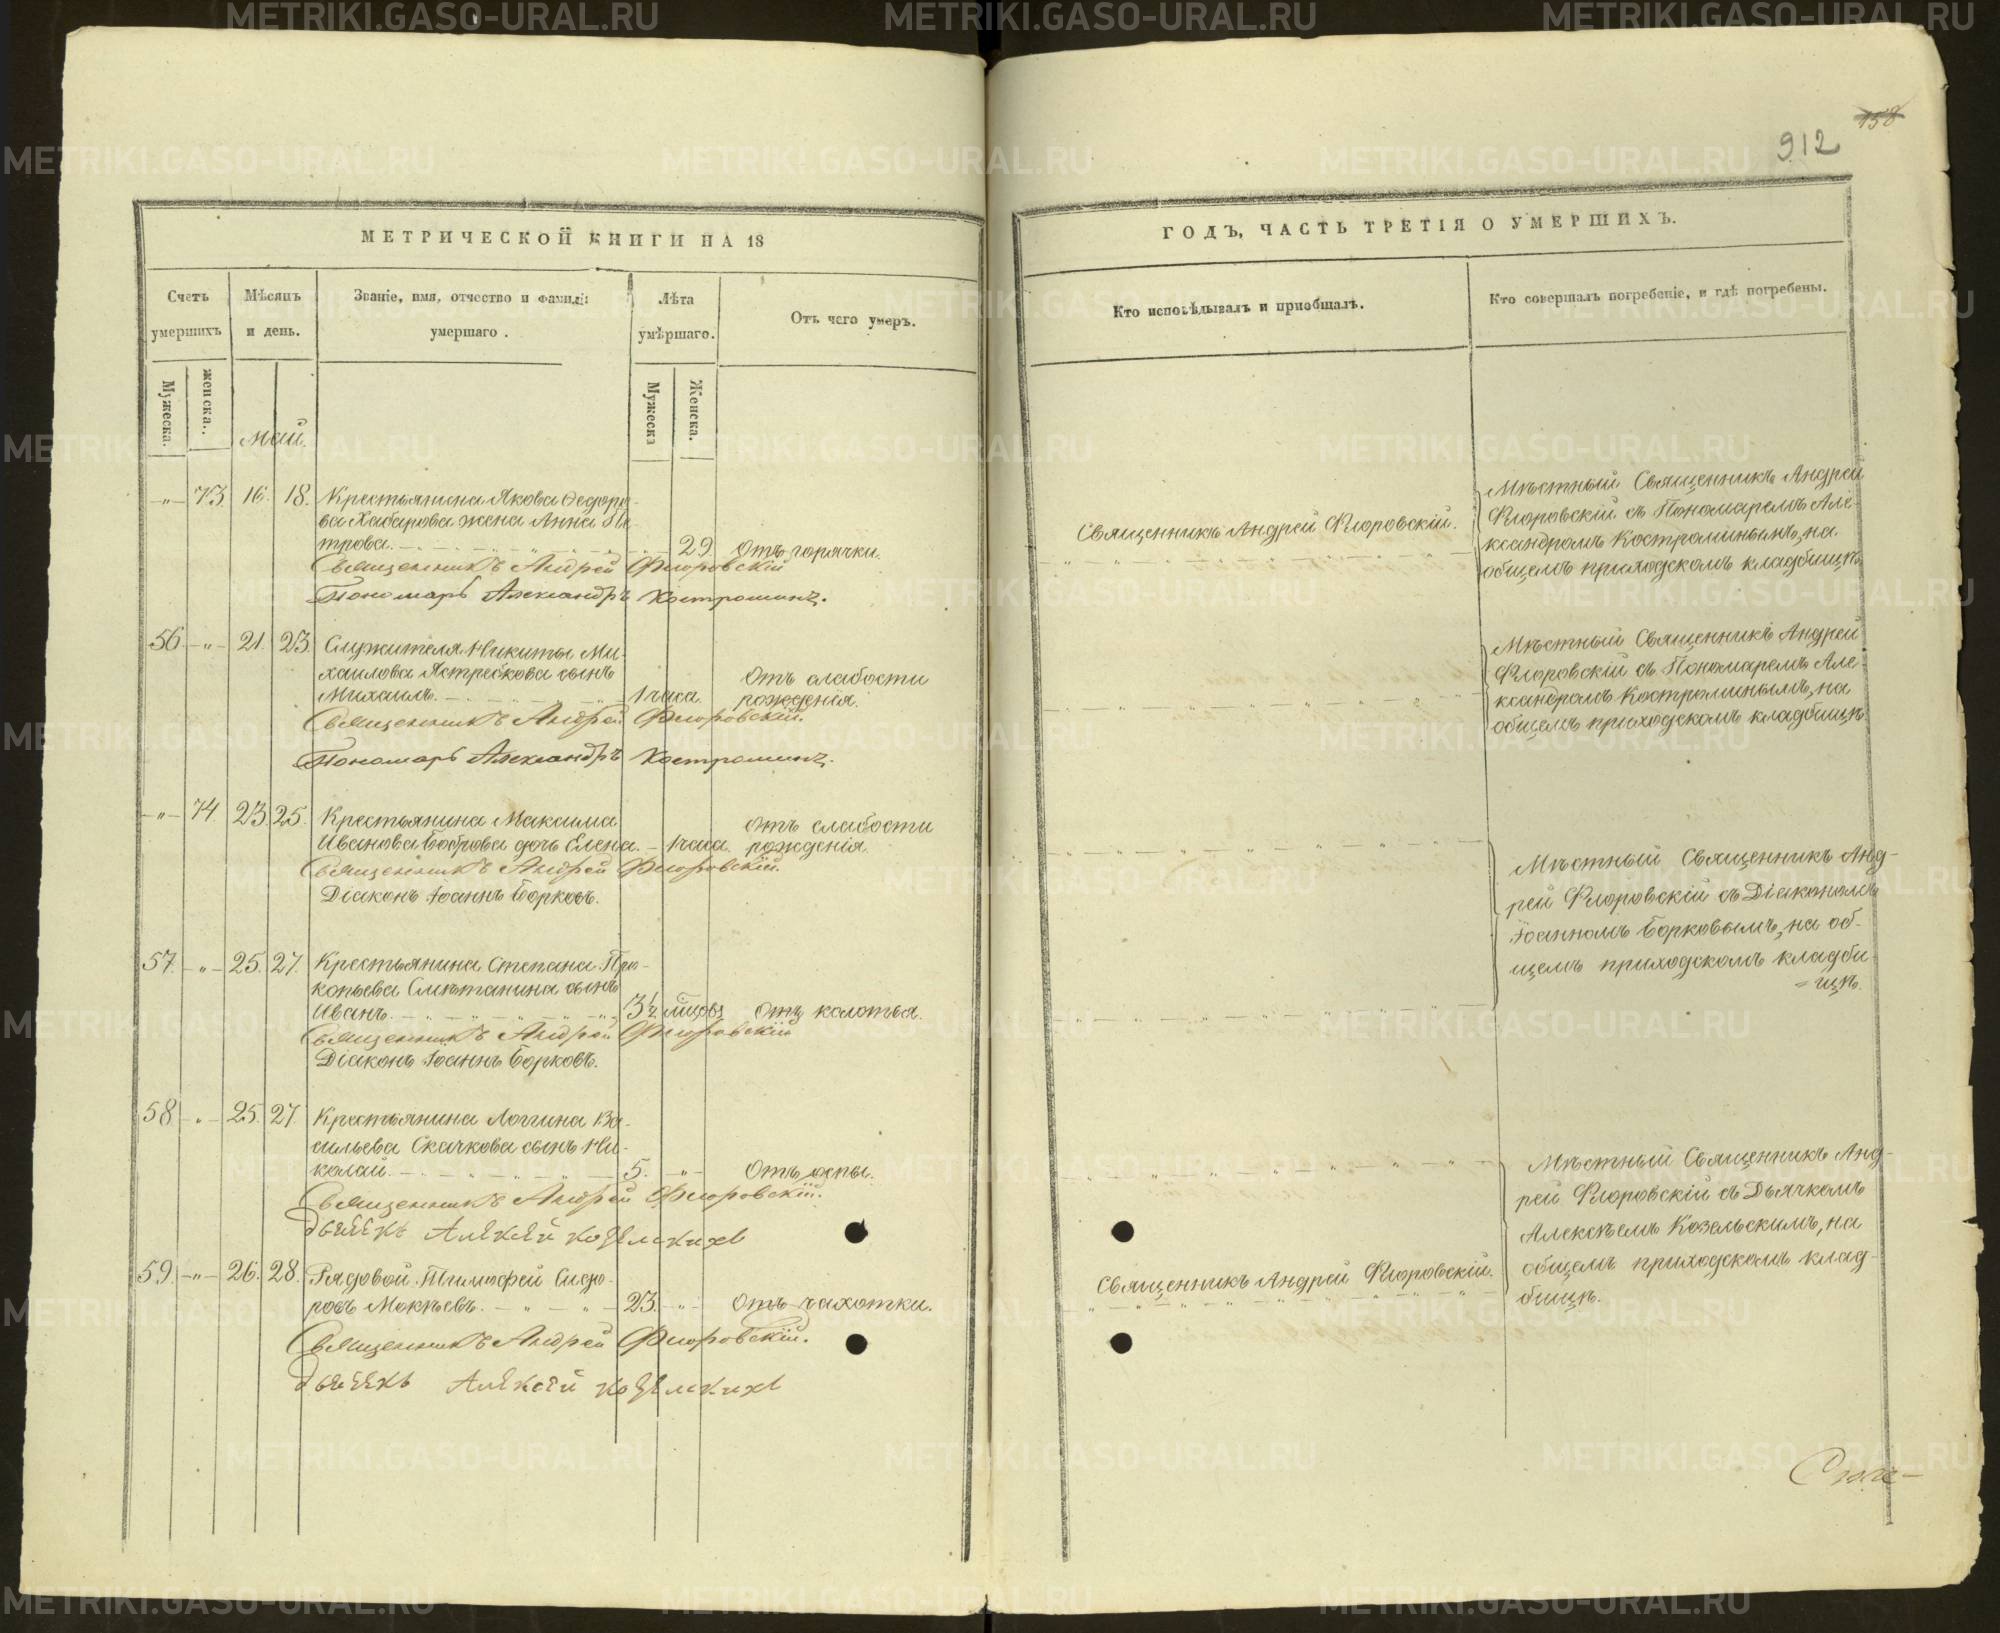 158
912
МЕТРИЧЕСКОЙ КНИГИ НА 18
Счетъ умершихъ
Мѣсяцъ и день.
Званіе, имя, отчество и фамилія умершаго.
Лѣта умѣршаго.
Отъ чего умеръ.
Мужеска.
женска.
Мужеска
Женска.
Май.
-„- 73 16. 18. Крестьянина Якова Ѳедоро-
ва Хабарова жена Анна Пе-
трова. 29. Отъ горячки.
Священникъ Андрей Флоровскій
Пономарь Александръ Костроминъ.
56 -„- 21. 23. Служителя Никиты Ми-
хаилова Ястребкова сынъ
Михаилъ. 1 часа. Отъ слабости
рожденія.
Священникъ Андрей Флоровскій.
Пономарь Александръ Костроминъ.
-„- 74. 23. 25. Крестьянина Максима
Иванова Боброва дочь Елена. - 1 часа. Отъ слабости
рожденія.
Священникъ Андрей Флоровскій.
Діаконъ Іоаннъ Борковъ.
57. -„- 25. 27. Крестьянина Степана Про-
копьева Смѣтанина сынъ
Иванъ. 3½ мѣсяц. Отъ колотья.
Священникъ Андрей Флоровскій
Діаконъ Іоаннъ Борковъ.
58 -„- 25. 27. Крестьянина Логгина Ва-
сильева Скачкова сынъ Ни-
колай. 5. -„- Отъ оспы.
Священникъ Андрей Флоровскій.
Дьячекъ Алексей Козелскихъ
59. -„- 26. 28. Рядовой Тимофей Сидо-
ровъ Мокѣевъ. 23. -„- Отъ чахотки.
Священникъ Андрей Флоровскій.
Дьячекъ Алексей Козелскихъ
ГОДЪ, ЧАСТЬ ТРЕТІЯ О УМЕРШИХЪ.
Кто исповѣдывалъ и пріобщалъ.
Кто совершалъ погребеніе, и гдѣ погребены.
Священникъ Андрей Флоровскій.
Мѣстный Священникъ Андрей
Флоровскій съ Пономаремъ Але-
ксандромъ Костроминымъ, на
общемъ приходскомъ кладбищѣ.
Мѣстный Священникъ Андрей
Флоровскій съ Пономаремъ Але-
ксандромъ Костроминымъ, на
общемъ приходскомъ кладбищѣ.
Мѣстный Священникъ Анд-
рей Флоровскій съ Діакономъ
Іоанномъ Борковымъ, на об-
щемъ приходскомъ кладби-
=щѣ.
Священникъ Андрей Флоровскій.
Мѣстный Священникъ Анд-
рей Флоровскій съ Дьячкомъ
Алексѣемъ Козельскимъ, на
общемъ приходскомъ клад-
бищѣ.
METRIKI.GASO-URAL.RU